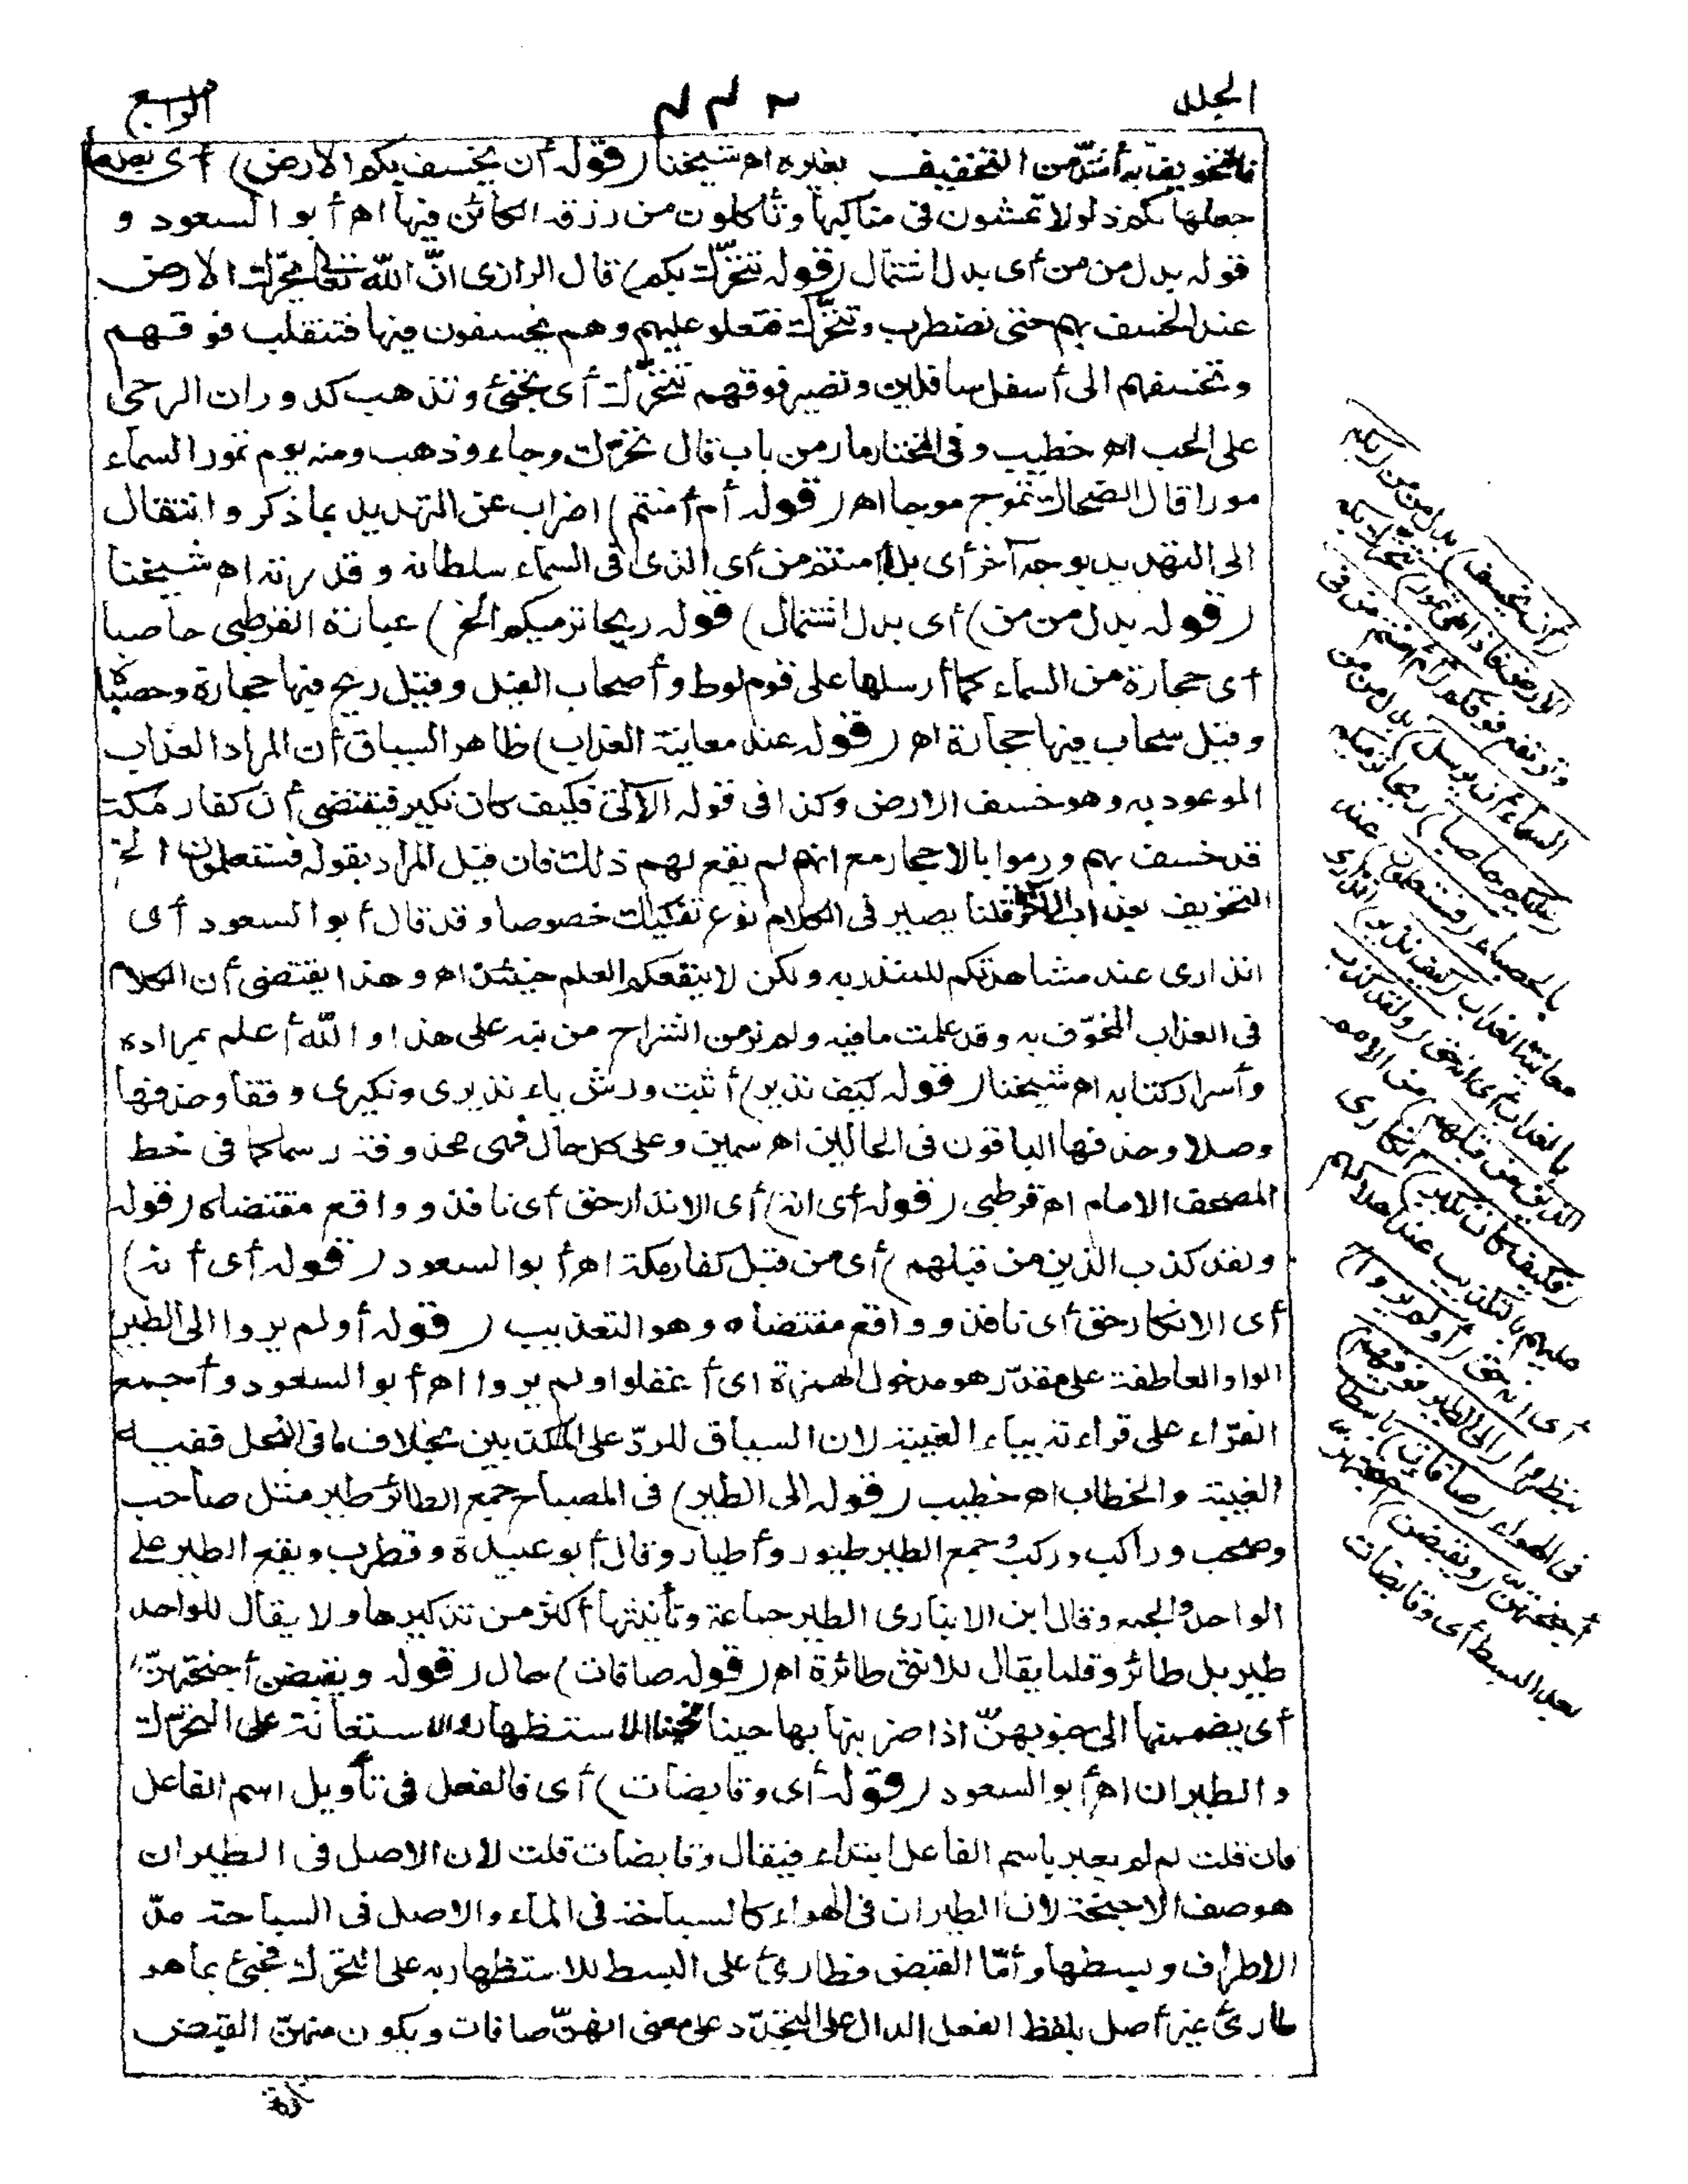 المجلد
الرابع
فالتخويف به أشد من التخفيف بغيره اهـ شيخنا (قوله أن يخسف بكم الارض) أى بعد ما
جعلها لكم ذلولا تمشون فى مناكبها وتأكلون من رزقه الكائن فيها اهـ أبو السعود و
قوله بدل من من أى بدل اشتمال (قوله تتحرّك بكم) قال الرازى انّ اللّه تعالى يحرّك الارض
عند الخسف بهم حتى تضطرب وتتحرّك فتعلو عليهم وهم يخسفون فيها فتنقلب فوقهم
وتخسفهم الى أسفل سافلين وتصير فوقهم تتحرّك أى تجئ وتذهب كدوران الرحى
على الحب اهـ خطيب وفى المختار مار من باب قال تحرّك وجاء وذهب ومنه يوم تمور السماء
مورا قال الضحاك تموج موجا اهـ (قوله أم أمنتم) اضراب عن التهديد بما ذكر وانتقال
الى التهديد بوجه آخر أى بل أمنتم من أى الذى فى السماء سلطانه وقدرته اهـ شيخنا
(قوله بدل من من) أى بدل اشتمال) قوله ريحا ترميكم الخ) عبارة القرطبى حاصبا
أى حجارة من السماء كما أرسلها على قوم لوط وأصحاب الفيل وقيل ريح فيها حجارة وحصباء
وقيل سحاب فيها حجارة اهـ (قوله عند معاينة العذاب) ظاهر السياق أن المراد العذاب
الموعود به وهو خسف الارض وكذا فى قوله الآتى فكيف كان نكير فيقتضى أن كفار مكة
قد خسف بهم ورموا بالاحجار مع انهم لم يقع لهم ذلك فان قيل المراد بقوله فستعلمون الخ
التخويف بعذاب الآخرة قلنا يصير فى الكلام نوع تفكيك خصوصا وقد قال أبو السعود أى
انذارى عند مشاهدتكم للمنذر به ولكن لا ينفعكم العلم حينئذ اهـ وهذا يقتضى أن الكلام
فى العذاب المخوّف به وقد علمت ما فيه ولم نر من الشراح من نبه على هذا واللّه أعلم بمراده
وأسرار كتابه اهـ شيخنا (قوله كيف نذير) أثبت ورش ياء نذيرى ونكيرى وقفا وحذفها
وصلا وحذفها الباقون فى الحالين اهـ سمين وعلى كل حال فهى محذوفة رسما كما فى خط
المصحف الامام اهـ قرطبى (قوله أى انه) أى الانذار حق أى نافذ وواقع مقتضاه (قوله
ولقد كذب الذين من قبلهم) أى من قبل كفار مكة اهـ أبو السعود (قوله أى أنه)
أى الانكار حق أى نافذ وواقع مقتضاه وهو التعذيب (قوله أولم يروا الى الطير
الواو العاطفة على مقدّر هو مدخول الهمزة اى أغفلوا ولم يروا اهـ أبو السعود وأجمع
القرّاء على قراءته بياء الغيبة لان السياق للردّ على المكذبين بخلاف ما فى النحل ففيه
الغيبة والخطاب اهـ خطيب (قوله الى الطير) فى المصباح جمع الطائر طير مثل صاحب
وصحب وراكب وركب وجمع الطير طيور وأطيار وقال أبو عبيدة وقطرب ويقع الطير على
الواحد والجمع وقال ابن الانبارى الطير جماعة وتأنيثها أكثر من تذكيرها ولا يقال للواحد
طير بل طائر وقلما يقال للانثى طائرة اهـ (قوله صافات) حال (قوله ويقبضن أجنحتهنّ
أى يضممنها الى جنوبهنّ اذا ضربنها بها حينا فحينا للاستظهار والاستعانة على التحرّك
والطيران اهـ أبو السعود (قوله أى وقابضات) أى فالفعل فى تأويل اسم الفاعل
فان قلت لم لم يعبر باسم الفاعل ابتداء فيقال وقابضات قلت لان الاصل فى الطيران
هو صف الاجنحة لان الطيران فى الهواء كالسباحة فى الماء والاصل فى السباحة مدّ
الاطراف وبسطها وأمّا القبض فطارئ على البسط للاستظهار به على التحرّك فجئ بما هو
طارئ غير أصل بلفظ الفعل الدال على التجدّد على معنى انهنّ صافات ويكون منهنّ القبض
تارة
(أن يخسف) بدل من من (بكم
الارض فاذا هى تمور) تتحرك بكم
وترتفع فوقكم (أم أمنتم من فى
السماء أن يرسل) بدل من من
(عليكم حاصبا) ريحا ترميكم
بالحصباء (فستعلمون) عند
معاينة العذاب (كيف نذير) انذارى
بالعذاب أى انه حق (ولقد كذب
الذين من قبلهم) من الامم
(فكيف كان نكير) انكارى
عليهم بالتكذيب عند اهلاكهم
أى انه حق (أولم يروا)
ينظروا (الى الطير فوقهم)
فى الهواء (صافات) باسطات
أجنحتهنّ (ويقبضن) أجنحتهنّ
بعد البسط أى وقابضات